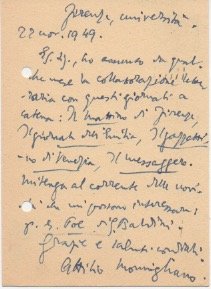 Firenze, università.
22 nov. 1949.
Eg. Sg., ho ancora da qual-
che mese la collaborazione lette-
raria con questi giornali a
catena: Il mattino di Firenze,
Il giornale dell'Emilia, Il gazzetti-
no di Venezia, Il messaggero.
Mi tenga al corrente delle novi-
tà che mi possono interessare:
p. es. Poe di G. Baldini.
Grazie e saluti cordiali
Attilio Momigliano.